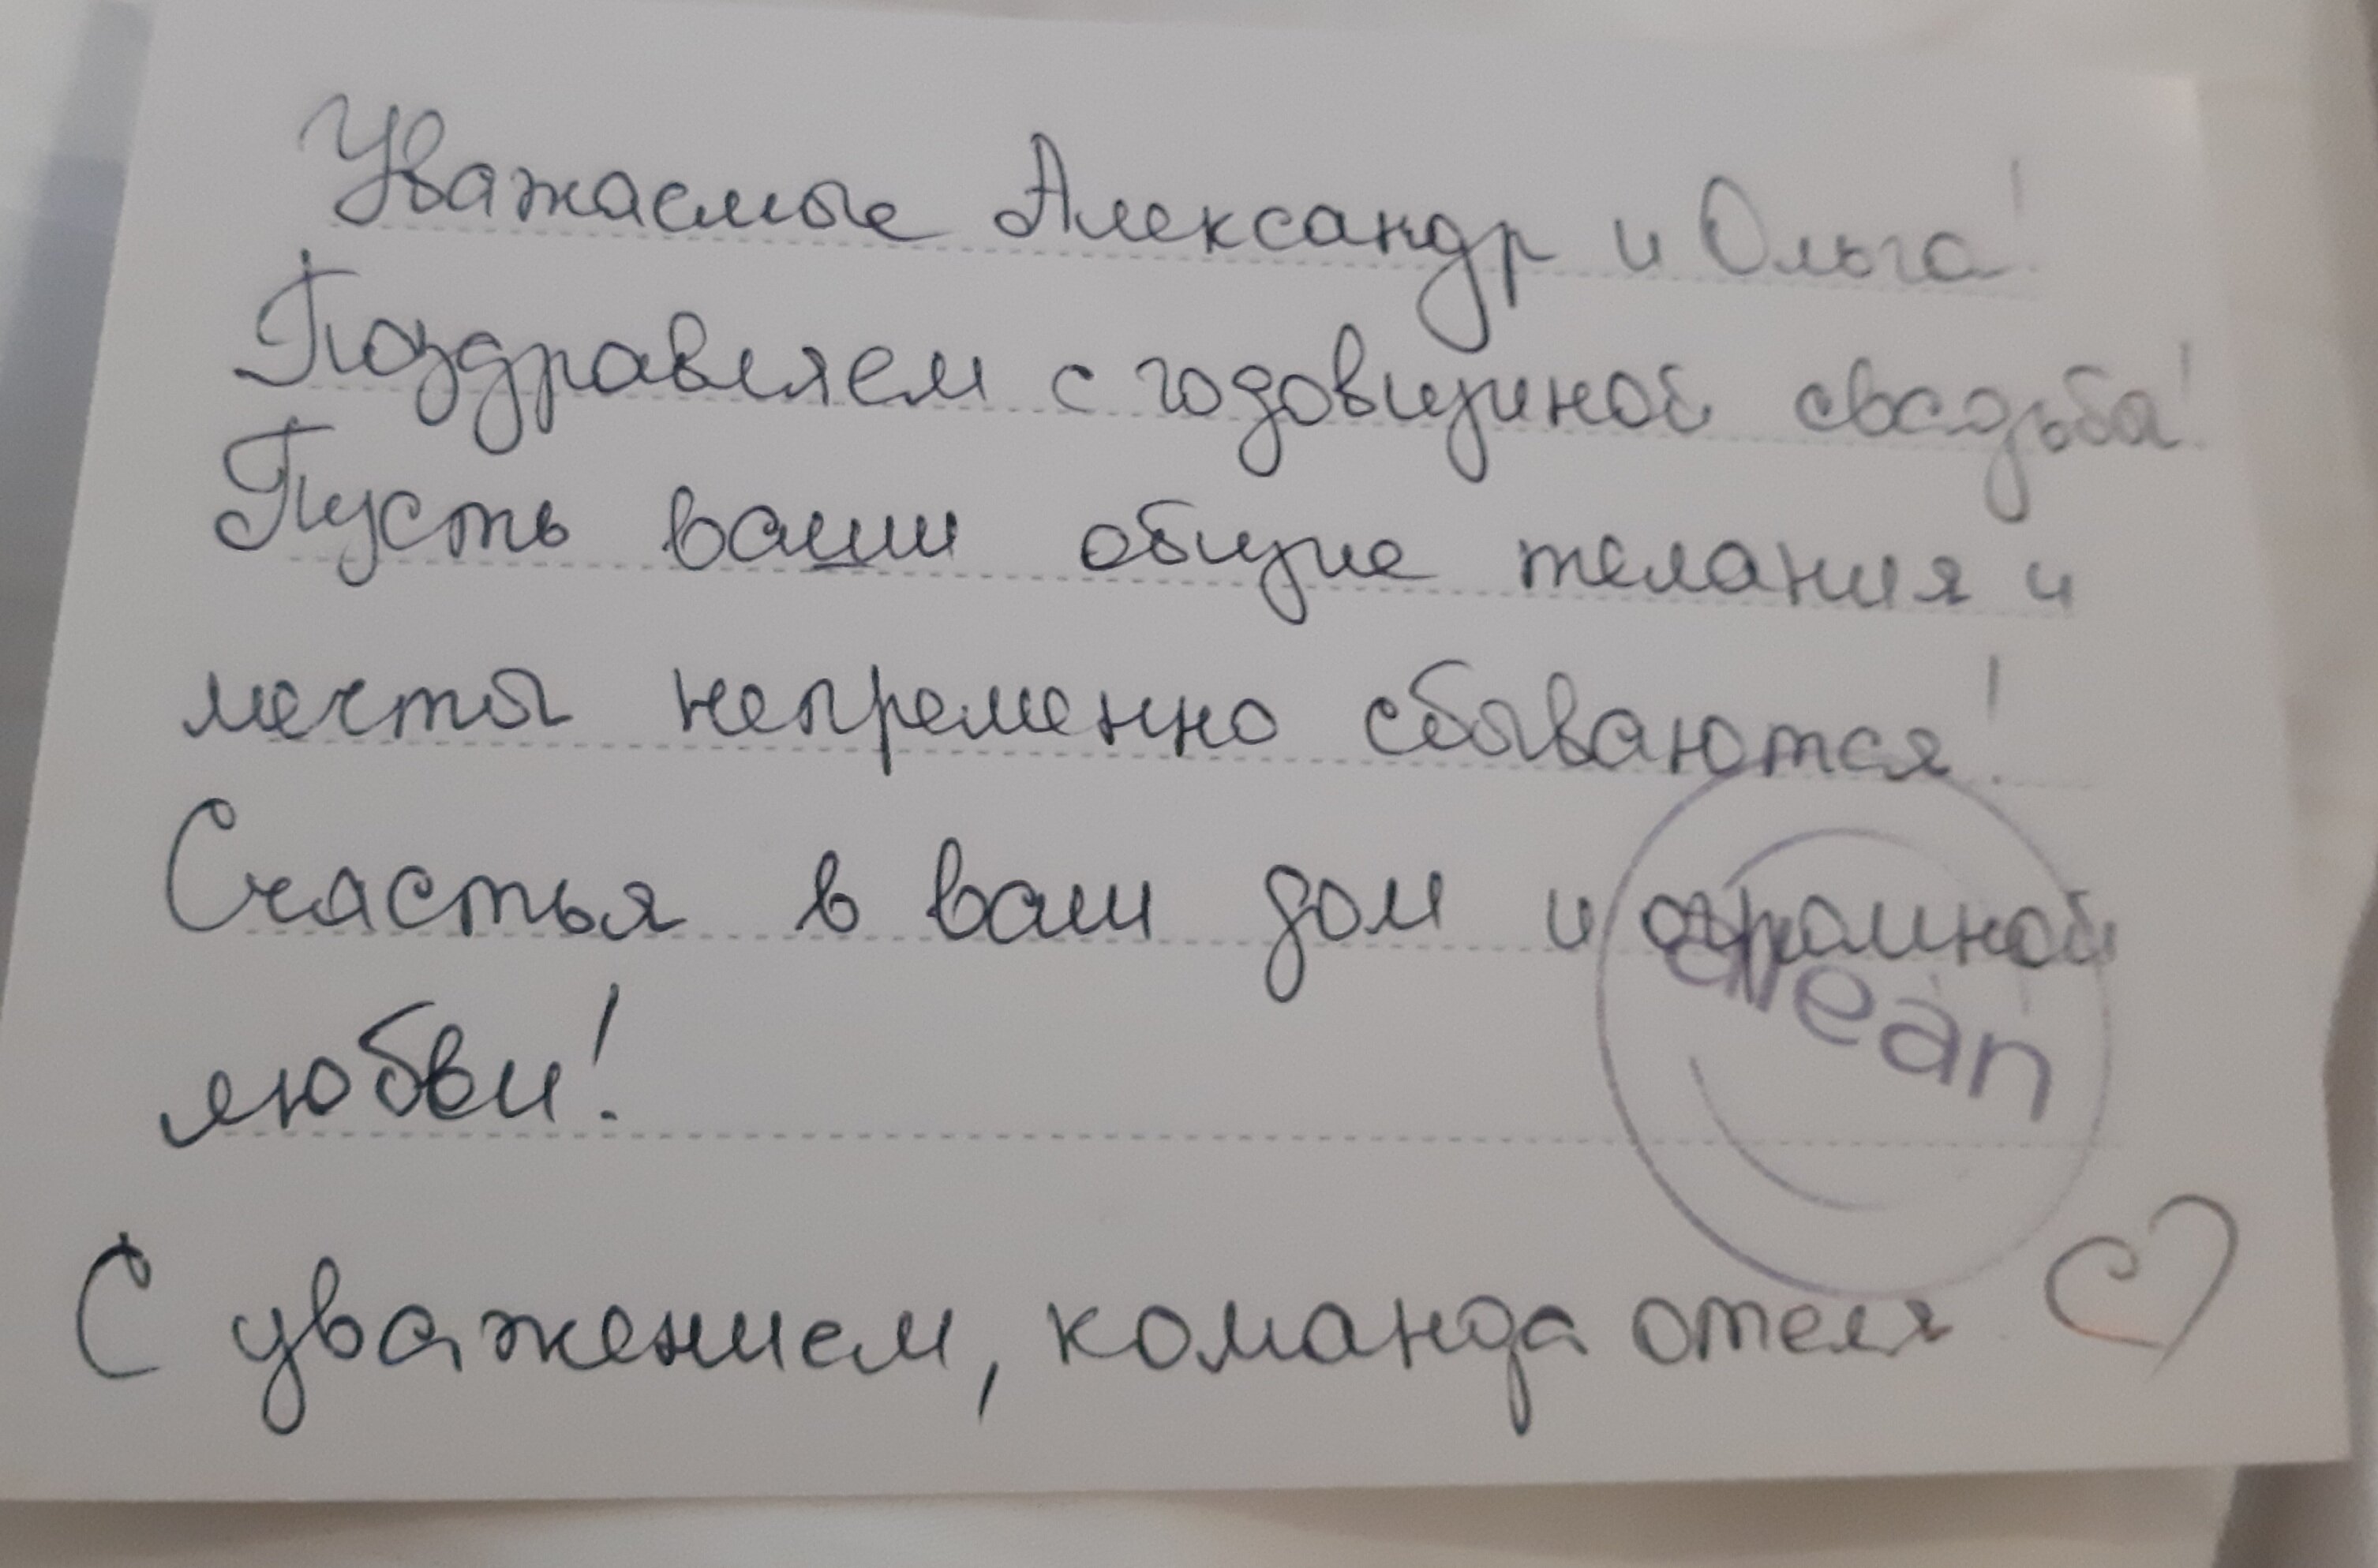 Уважаемые Александр и Ольга!
Поздравляем с годовщиной свадьба!
Пусть ваши общие желания и
мечты непременно сбываются!
Счастья в ваш дом и огромной
любви!
alean
С уважением, команда отеля